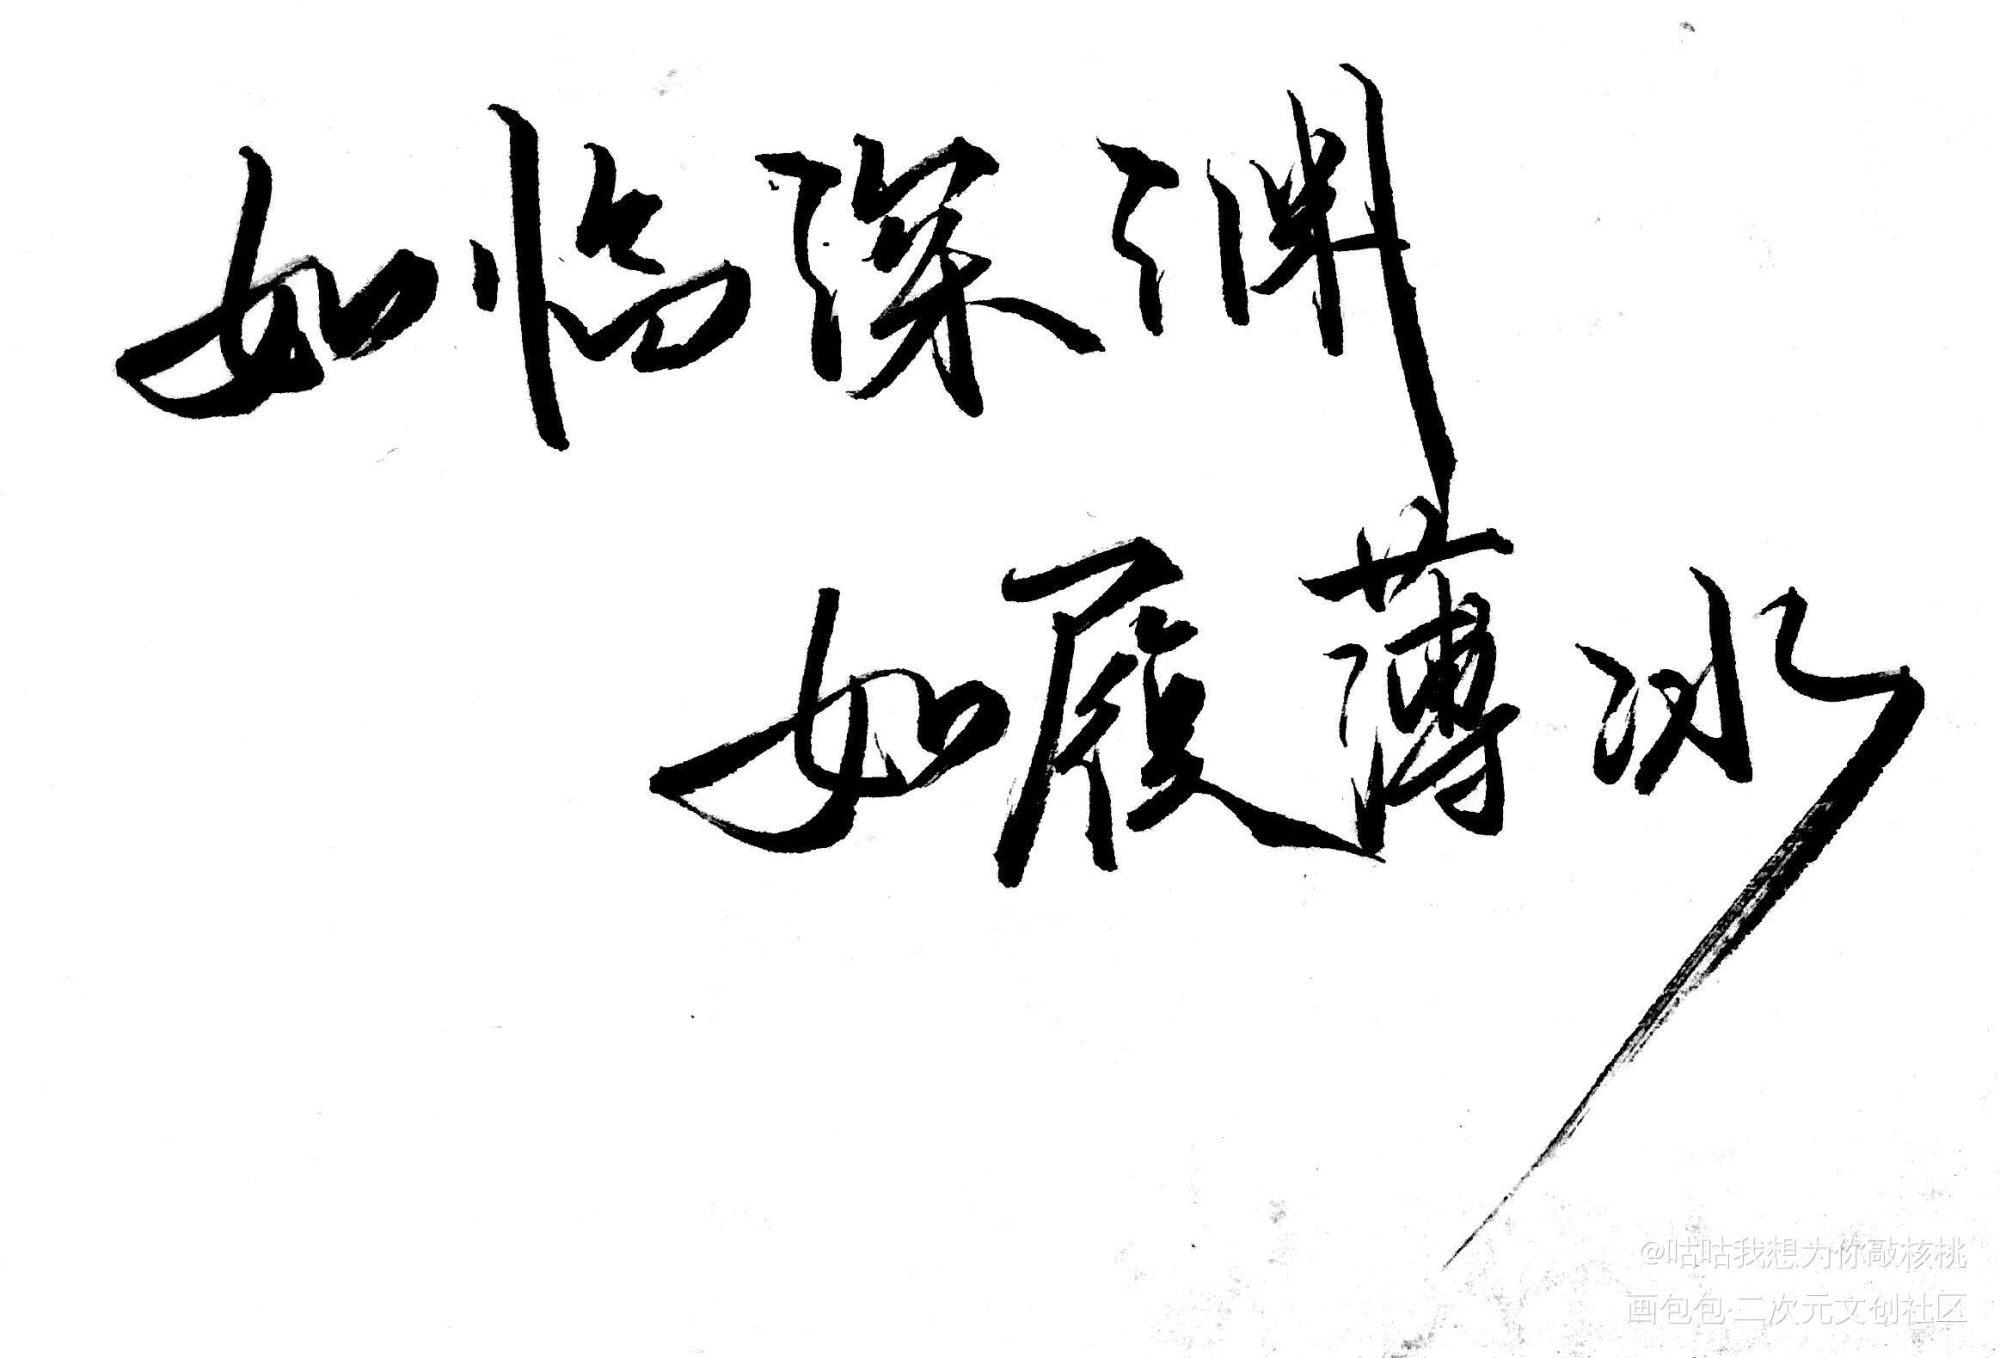 如临深渊
如履薄冰
@咕咕我想为你敲核桃
画包包·二次元文创社区